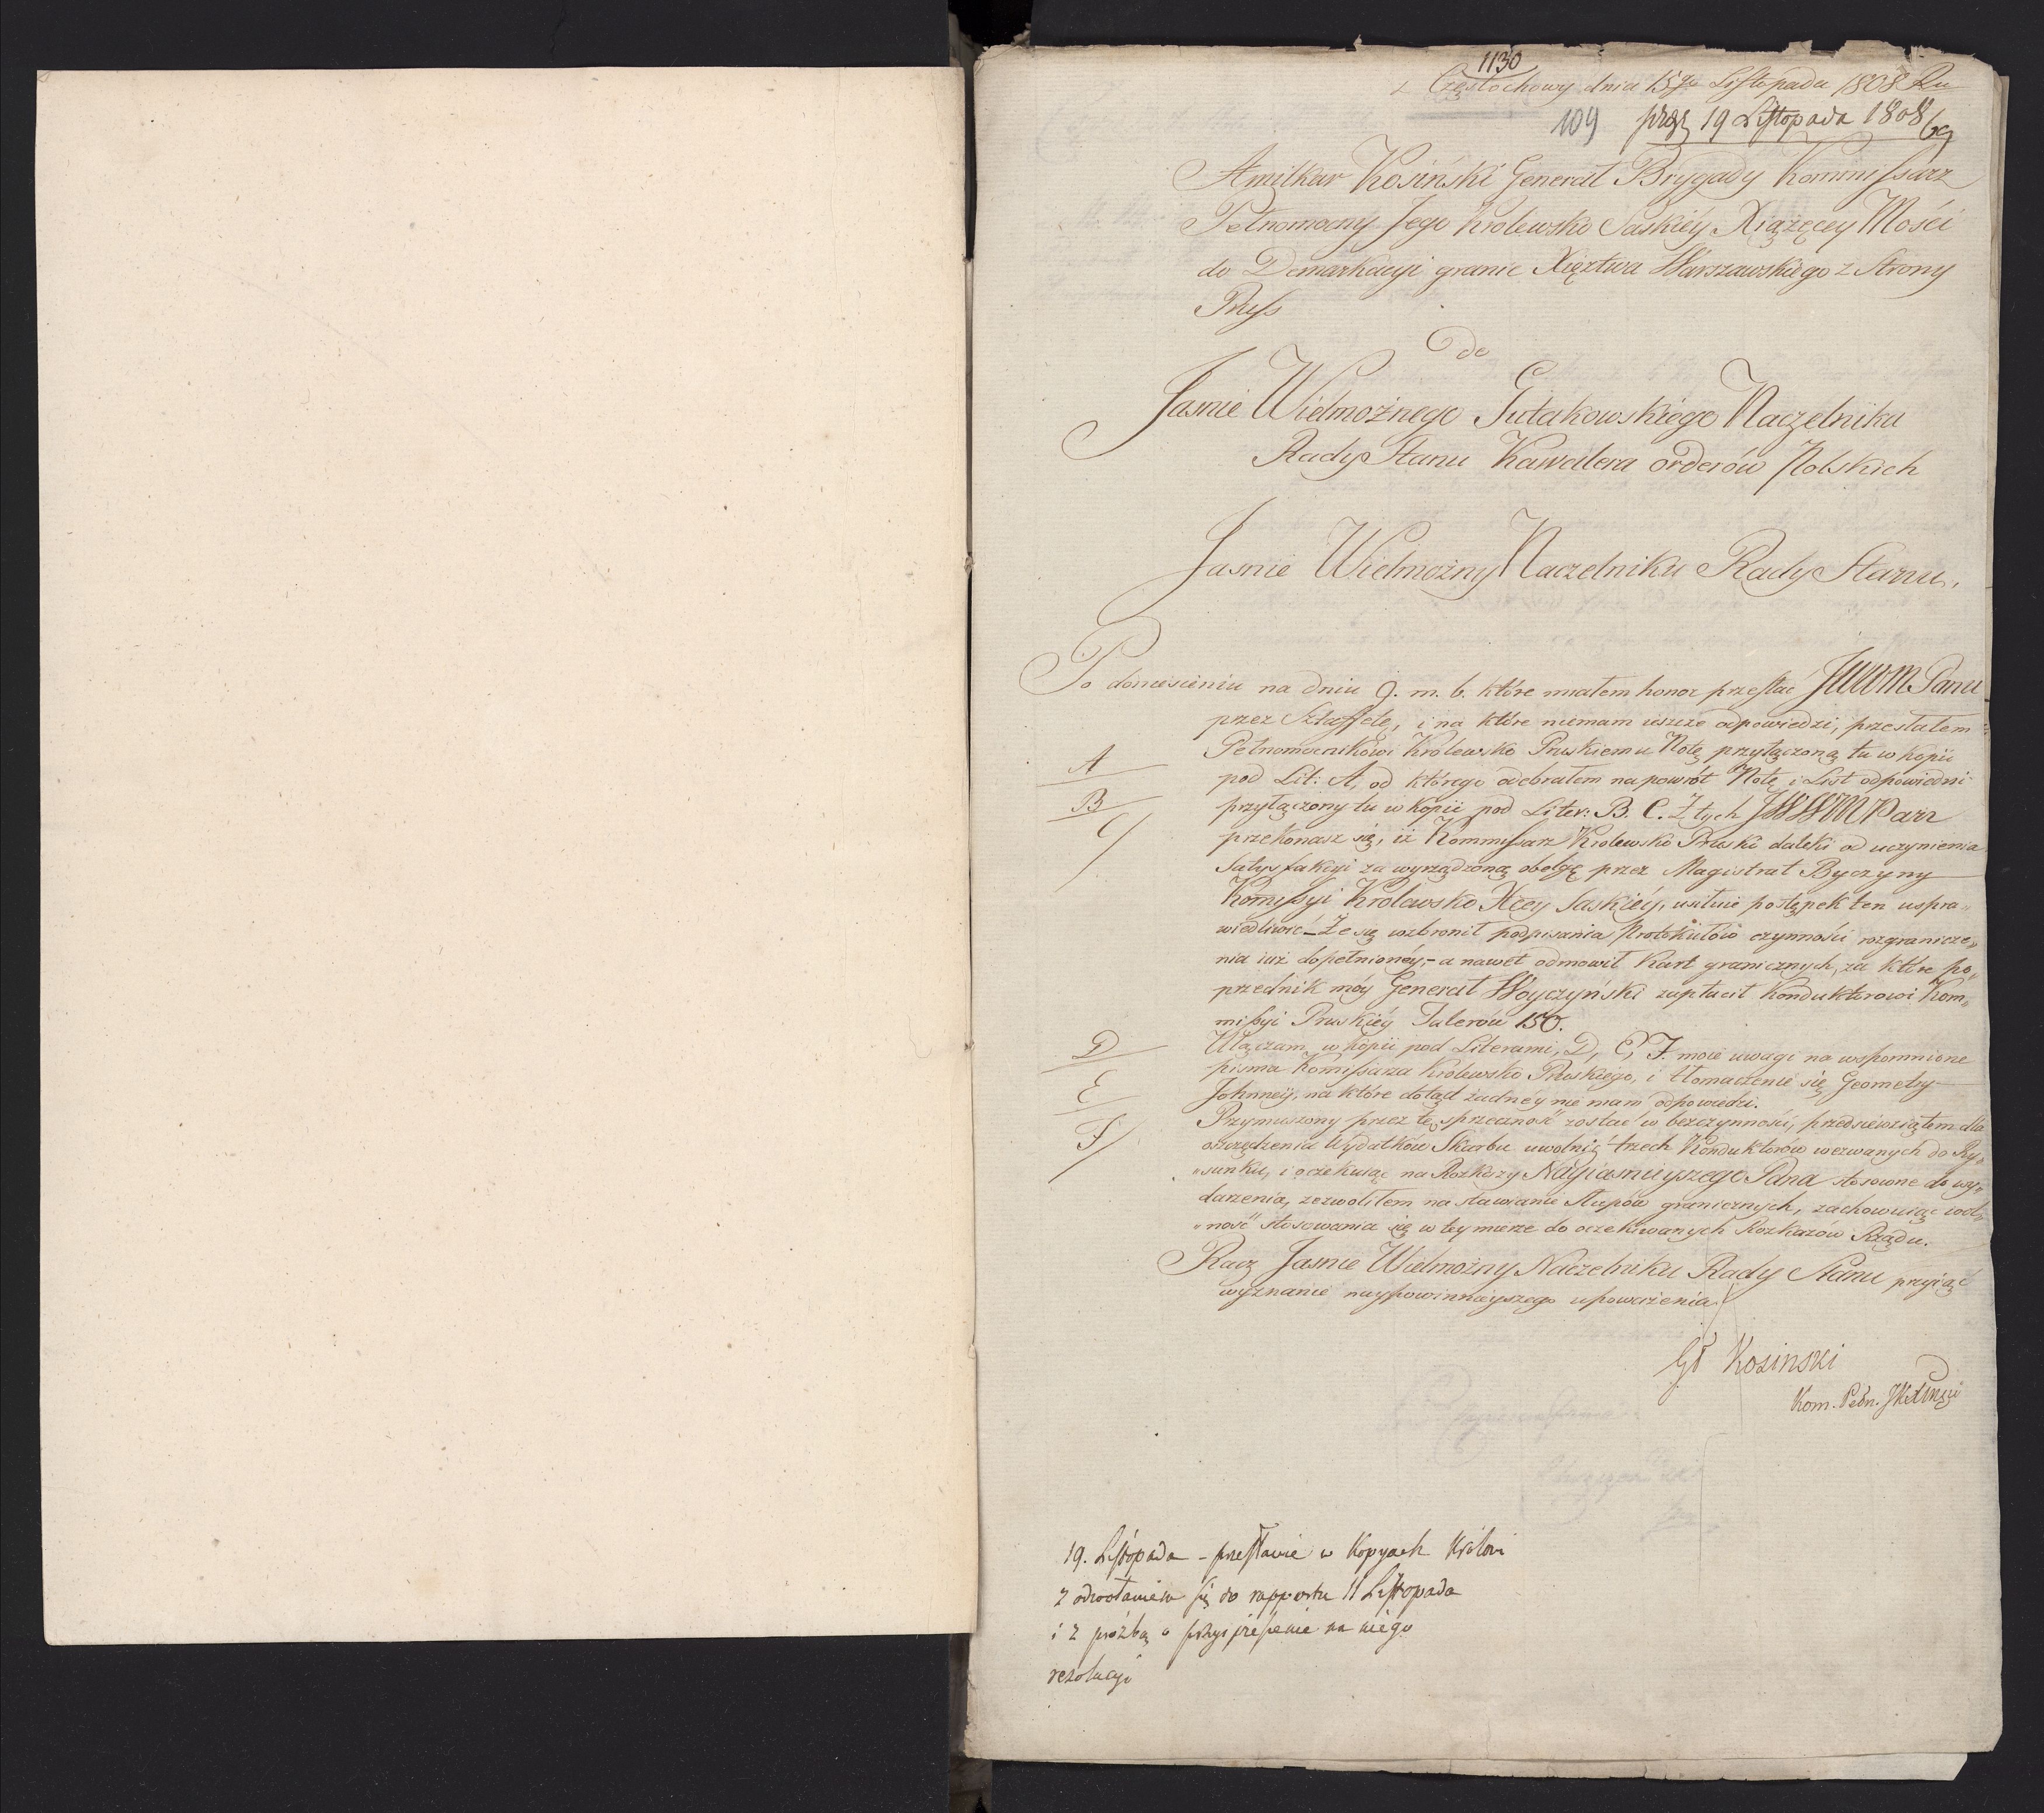 1130
z Częstochowy dnia 15go Listopada 1808 Ru
109 prez 19 Listopada 1808 69
Amilkar Kosiński Generał Brygady Kommissarz
Pełnomocny Jego Królewsko Saskiéy Xiążęcey Mości
do Demarkacyi granic Xięztwa Warszawskiego z Strony
Pruss
do
Jaśnie Wielmożnego Gutakowskiégo Naczelnika
Rady Stanu Kawalera orderów Polskich
Jaśnie Wielmożny Naczelniku Rady Stanu,
Po doniesieniu na dniu 9. m. b. które miałem honor przesłać JWWM Panu
przez Sztaffetę, i na które niemam ieszcze odpowiedzi, przesłałem
A Pełnomocnikowi Królewsko Pruskiemu Notę przyłączoną tu w kopii
pod Lit: A, od którego odebrałem napowrót Notę i List odpowiedni
B przyłączony tu w kopii pod Liter: B. C. Z tych JWWM Pan
C przekonasz się, iż Kommissarz Królewsko Pruski daleki od uczynienia
Satysfakcyi za wyrządzoną obelgę przez Magistrat Byczyny
Komissyi Królewsko Xcey Saskiéy, usiłuie postępek ten uspra„
wiedliwić_ Że się wzbronił podpisania Protokułów czynności rozgranicze„
nia iuż dopełnionéy,- a nawet odmowił Kart granicznych, za które po„
przednik móy Generał Woyczyński zapłacił Konduktorowi Kom„
missyi Pruskiéy Talerów 150.
D Włączam w kopii pod Literami, D, E, F. moie uwagi na wspomnione
pisma Komissarza Królewsko Pruskiego, i tłomaczenie się Geometry
E Johnney, na które dotąd żadney nie mam odpowiedzi.
Przymuszony przez tę sprzeczność zostać w bezczynności, przedsięwziąłem dla
F oszczędzenia Wydatków Skarbu uwolnić trzech Konduktorów wezwanych do Ry„
„sunku, i oczekuiąc na Rozkazy Nayiaśnieyszego Pana stosowne do wy„
darzenia, zezwoliłem na stawianie Słupów granicznych, zachowuiąc wol„
„ność stosowania się w tey mierze do oczekiwanych Rozkazów Rządu.
Racz Jaśnie Wielmożny Naczelniku Rady Stanu przyiąć
wyznanie naypowinnieyszego upoważenia
Gł Kosinski
Kom. Pełn.
19. Listopada - przesłanie w Kopyach Królowi
z odwołaniem się do rapportu 11 Listopada
i z prośbą o przyspieszenie na niego
rezolucyi